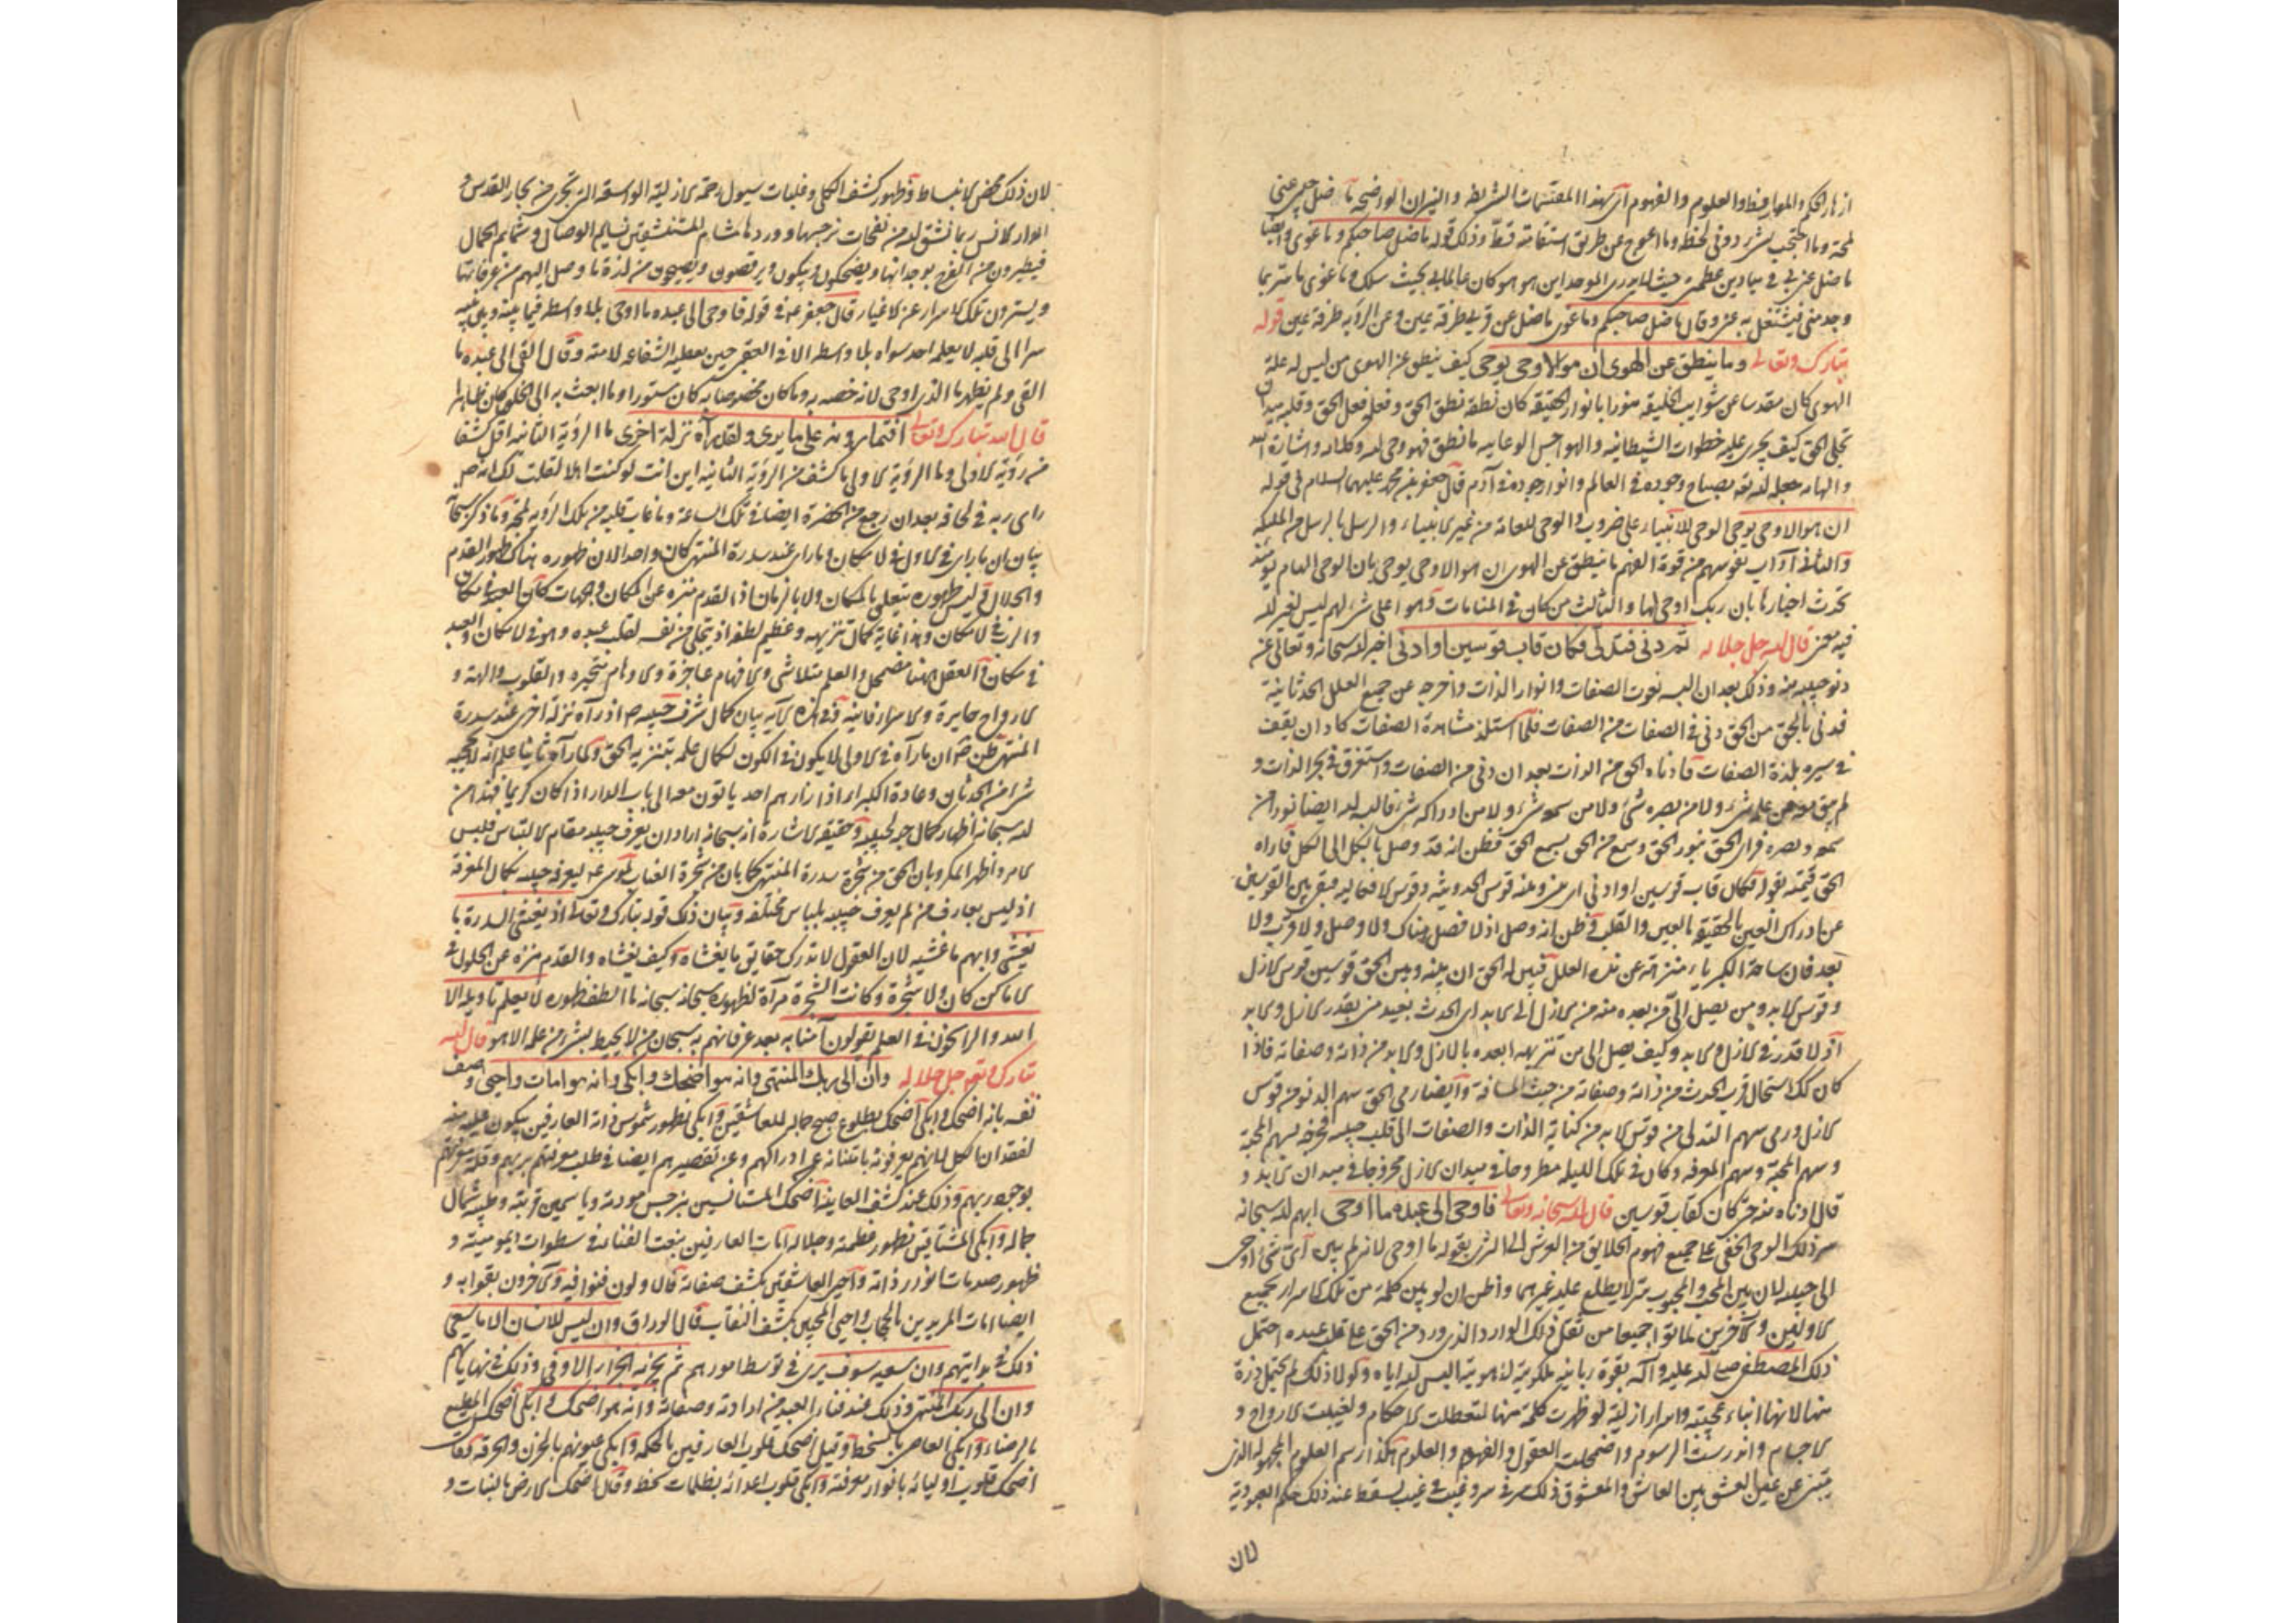 ازهار الحكم والمعارف والعلوم والفهوم اى بهذا المقسمات الشريفة والنيران الواضحة ما ضل حبيبى عنى
لمحة وما احتجب بشئ دونى لحظة وما اعوج عن طريق استقامته قط وذلك قوله ما ضل صاحبكم وما غوى وايضا
ما ضل عنى فى ميادين عظمتى حيث لا يدرى الموحد اين هو هو كان عالما بى بحيث سلك وما غوى ما ستر بما
وجد منى فيشتغل به عنى وقال ما ضل صاحبكم وما غوى ما ضل عن قربه طرفة عين وعن الرؤية طرفة عين قوله
تبارك وتعالى وما ينطق عن الهوى ان هو الا وحى يوحى كيف ينطق عن الهوى من ليس له علة
الهوى كان مقدسا عن شوايب الخليقة منورا بانوار الحقيقة كان نطقه نطق الحق وفعله فعل الحق وقلبه ميدان
تجلى الحق كيف يجرى عليه خطوات الشيطانية والهواجس ما نطق فهو وحى الله وكلامه واشارة الله
والهامه جعله الله تعه مصباح وجوده فى العالم وانوار جوده فى آدم قال جعفر بن محمد عليهما السلام فى قوله
ان هو الا وحى يوحى الوحى للانبياء على ضروب والوحى للعامة من غير الانبياء والرسل بالرسل من الملئكة
والثانى آداب نفوسهم من قوة الفهم ما ينطق عن الهوى ان هو الا وحى يوحى بان الوحى العام يومئذ
تحدث اخبارها بان ربك اوحى لها والثالث من كان فى المنامات وهو اعلى شئ لهم ليس لغير الله
فيه معنى قال الله جل جلاله ثم دنى فتدلى فكان قاب قوسين او ادنى اخبر الله سبحانه وتعالى عن
دنو حبيبه منه وذلك بعد ان البسه نعوت الصفات وانوار الذات واخرجه عن جميع العلل الحدثانية
فدنى بالحق من الحق دنى فى الصفات من الصفات فلما استلذ مشاهدة الصفات كاد ان يقف
فى سيره بلذة الصفات فادناه الحق من الذات بعد ان دنى من الصفات واستغرق فى بحر الذات و
لم يبق من علمه شئ ولا من بصره شئ ولا من سمعه شئ ولا من ادراكه شئ فالبسه الله ايضا نورا من
سمعه وبصره فراى الحق بنور الحق وسمع من الحق بسمع الحق فظن انه قد وصل بالكل الى الكل فاراه
الحق قيمته بقوله فكان قاب قوسين او ادنى اى بينى وبينه قوس الحدوثية وقوس الافعالية فبقى بين القوسين
عن ادراك العين بالحقيقة بالعين والقلب فظن انه وصل اذ لا فصل هناك ولا وصل ولا قرب ولا
بعد فان ساحة الكبرياء منزهة عن هذه العلل فبين له الحق ان بينه وبين الحق قوسين قوس الازل
وقوس الابد ومن يصل الى من بعده منه من الازل الى الابد اى الحدث بعيد من بقدر الازل والابد
اذ لا قدر فى الازل والابد وكيف يصل الى من تنزيهه ابعده بالازل والابد من ذاته وصفاته فاذا
كان كك استحال قرب الحدث من ذاته وصفاته من حيث المسافة وايضا رمى الحق سهم الدنو من قوس
الازل ورمى سهم التدلى من قوس الابد من كنانة الذات والصفات الى قلب حبيبه فجرحه بسهم المحبة
وسهم المحبة وسهم المعرفة وكان فى تلك الليلة مطروحا فى ميدان الازل مجروحا فى ميدان الابد و
قال ادناه منه حتى كان كقاب قوسين قال الله سبحانه وتعالى فاوحى الى عبده ما اوحى ابهم الله سبحانه
سر ذلك الوحى الخفى على جميع فهوم الخلايق من العرش الى الثرى بقوله ما اوحى لانه لم يبين اى شئ اوحى
الى حبيبه لان بين المحب والمحبوب سر لا يطلع عليه غيرهما واظن ان لو بين كلمة من تلك الاسرار لجميع
الاولين والاخرين لماتوا جميعا من ثقل ذلك الوارد الذى ورد من الحق على قلب عبده احتمل
ذلك المصطفى صلى الله عليه وآله بقوة ربانية ملكوتية لاهوتية البس الله اياه ولولا ذلك لم يحتمل ذرة
منها لانها انباء عجيبة واسرار ازلية لو ظهرت كلمة منها لتعطلت الاحكام ولفنيت الارواح و
الاجسام واندرست الرسوم واضمحلت العقول والفهوم والعلوم هكذا رسم العلوم المجهولة الذى
ينبئ عن عين العشق بين العاشق والمعشوق ذلك سر فى سر وغيب فى غيب يسقط عنه ذلك حكم العبودية
لان
لان ذلك محض الانبساط وظهور كشف الكلى وغلبات سيول رحمة الازلية الواسعة التى تجرى من بحار القدس و
انوار الانس ربما تنشق لله من نفحات نرجسها ووردها مشام المستنشقين نسايم الوصال وشمايم الجمال
فيطيرون من الفرح بوجدانها ويضحكون ويبكون ويرقصون ويصيحون من لذة ما وصل اليهم من عرفانها
ويسترون تلك الاسرار عن الاغيار قال جعفر عه فى قوله فاوحى الى عبده ما اوحى بلا واسطة فيما بينه وبين ربه
سرا الى قلبه لا يعلمه احد سواه بلا واسطة الا فى العقبى حين يعطيه الشفاعة لامته وقال القى الى عبده ما
القى ولم يظهر ما الذى اوحى لانه خصه به وما كان مخصوصا به كان مستورا وما بعث به الى الخلق كان ظاهرا
قال الله تبارك وتعالى افتمارونه على ما يرى ولقد رآه نزلة اخرى ما الرؤية الثانية اقل كشفا
من رؤية الاولى وما الرؤية الاولى باكشف من الرؤية الثانية اين انت لو كنت اهلا لقلت لك انه ص
راى ربه فى لحافه بعد ان رجع من الحضرة ايضا فى تلك الساعة وما غاب قلبه من تلك الرؤية لمحة وما ذكر سبحانه
بيان ان ما راى فى الاول فى لا مكان وما راى عند سدرة المنتهى كان واحدا لان ظهوره هناك ظهور القدم
والجلال وليس ظهوره يتعلق بالمكان ولا بالزمان اذ القدم منزه عن المكان والجهات كان العبد فى مكان
والرب فى لا مكان وهذا غاية كمال تنزيهه وعظيم لطفه اذ يتجلى من نفسه لقلب عبده وهو فى لا مكان والعبد
فى مكان والعقل ههنا مضمحل والعلم متلاش والافهام عاجزة والاوهام متحيره والقلوب والهة و
الارواح حايرة والاسرار فانية وفى هذه الاية بيان كمال شرف حبيبه ص اذ رآه نزلة اخرى عند سدرة
المنتهى ظن ص ان ما رآه فى الاولى لا يكون فى الكون لكمال علمه بتنزيه الحق فلما رآه ثانيا علم انه لا يحجبه
شئ من الحدثان وعادة الكبراء اذا زارهم احد ياتون معه الى باب الدار اذا كان كريما فهذا من
الله سبحانه اظهار كمال حبه لحبيبه وحقيقة الاشارة انه سبحانه اراد ان يعرف حبيبه مقام الالتباس فلبس
الامر واظهر المكر وبان الحق من شجرة سدرة المنتهى كما بان من شجرة العناب لموسى عه ليعرفه حبيبه بكمال المعرفة
اذ ليس بعارف من لم يعرف حبيبه بلباس مختلفة وبيان ذلك قوله تبارك وتعالى اذ يغشى السدرة ما
يغشى وابهم ما غشيه لان العقول لا تدرك حقايق ما يغشاه وكيف يغشاه والقدم منزه عن الحلول فى
الاماكن كان ولا شجرة وكانت الشجرة مرآة لظهوره سبحانه سبحانه ما الطف ظهوره لا يعلم تاويله الا
الله والراسخون فى العلم يقولون آمنا به بعد عرفانهم به سبحان من لا يحيط بشئ من علمه الا هو قال الله
تبارك وتعه جل جلاله وان الى ربك المنتهى وانه هو اضحك وابكى وانه هو امات واحيى وصف
نفسه بانه اضحك وابكى اضحك بطلوع صبح جماله للعاشقين وابكى بظهور شموس ذاته العارفين يبكون عليه منه
لفقدان الكل لانهم يعرفونه بامتناعه عن ادراكهم وعن تقصيرهم ايضا فى طلب معرفتهم بربهم وقلة معرفتهم
بوجود ربهم وذلك عند كشف العاينة اضحك المستانسين بنرجس مودته وياسمين قربته وطيب شمال
جماله وابكى المشتاقين بظهور عظمته وجلاله امات العارفين بنعت الفناء فى سطوات ديموميته و
ظهور صدمات انوار ذاته واحيى العاشقين بكشف صفاته قال اولون فنوا فيه والاخرون بقوا به و
ايضا امات المريدين بالحجاب واحيى المحبين بكشف النقاب قال الوراق وان ليس للانسان الا ما سعى
ذلك فى بدايتهم وان سعيه سوف يرى فى توسط امورهم ثم يجزيه الجزاء الاوفى وذلك فى نهاياتهم
وان الى ربك المنتهى وذلك عند فناء العبد من ارادته وصفاته وانه هو اضحك وابكى اضحك المطيع
بالرضاء وابكى العاصى بالسخط وقيل اضحك قلوب العارفين بالحكمة وابكى عيونهم بالحزن والحرقة
اضحك قلوب اوليائه بانوار معرفته وابكى قلوب اعدائه بظلمات سخطه وقال اضحك الارض بالنبات و